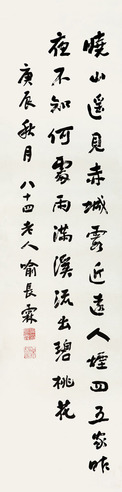 曉山遥見赤城霞近遠人煙四五家昨
夜不知何處雨滿溪流出碧桃花
庚辰秋月 八十四老人喻長霖